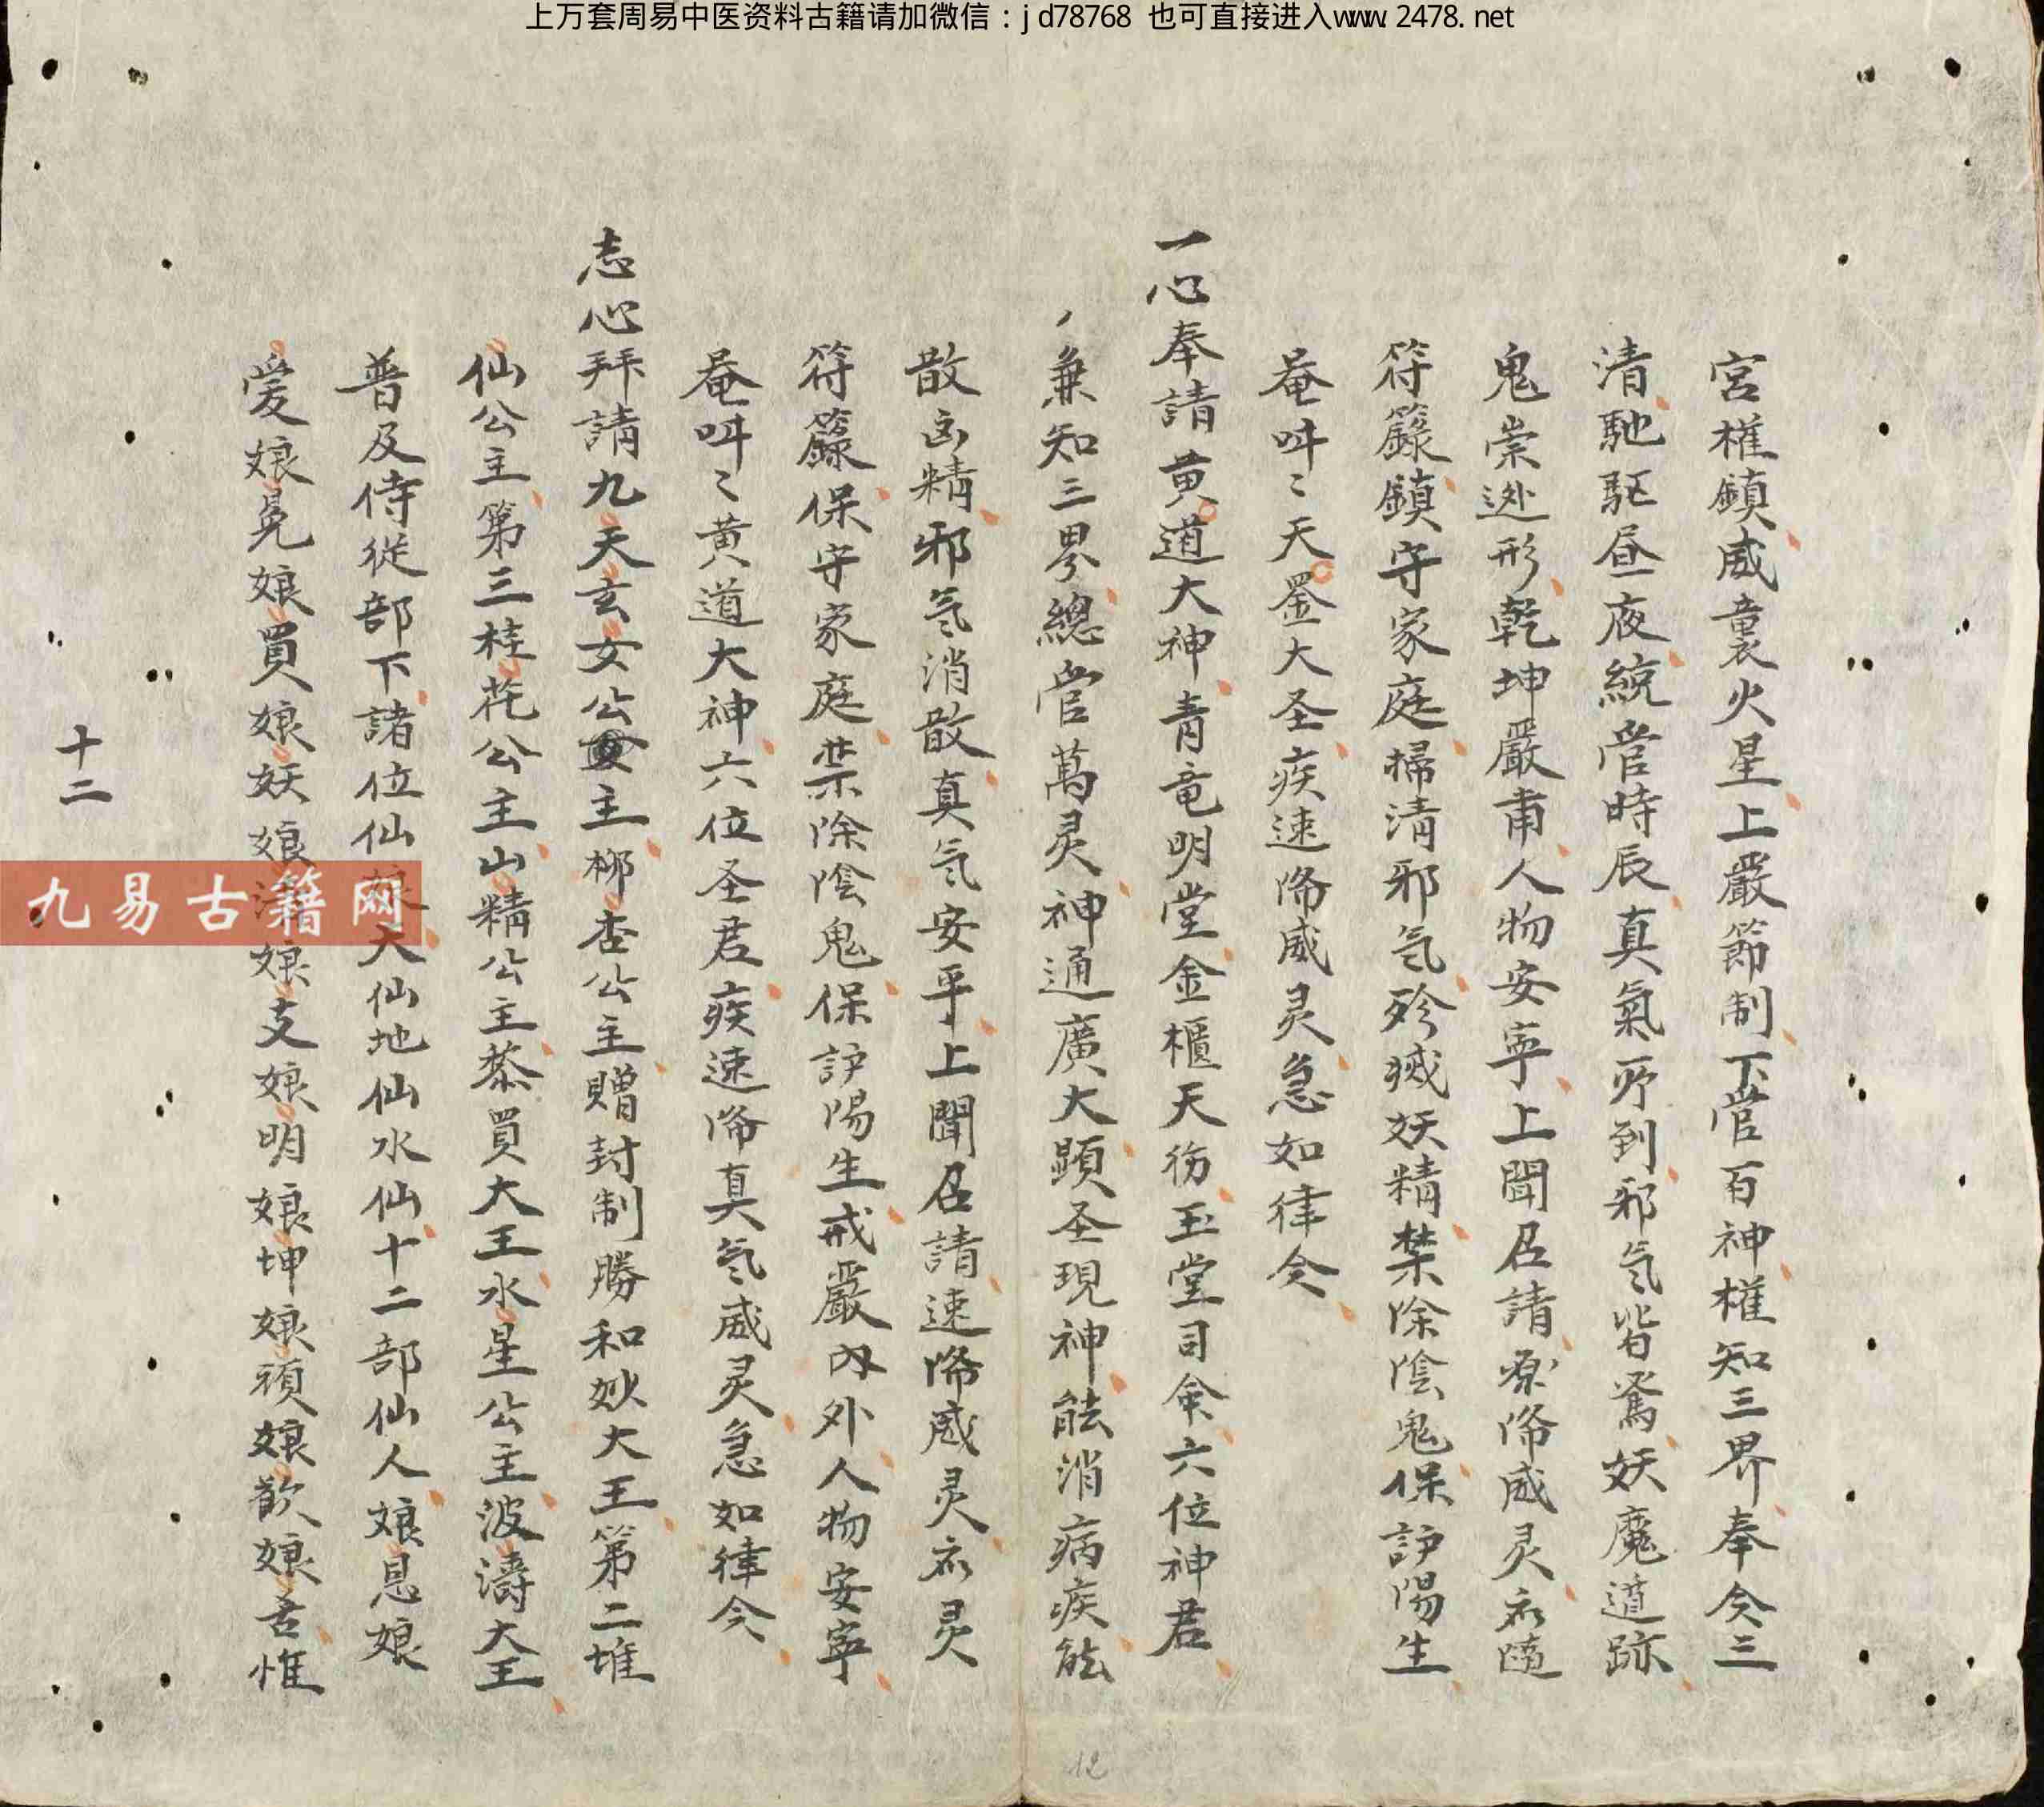 上万套周易中医资料古籍请加微信：jd78768 也可直接进入www.2478.net
宮權鎮威裏火星上嚴節制下管百神權知三界奉令三
清馳駆昼夜統管時辰真氣所到邪気皆驚妖魔遁跡
鬼祟迯形乾坤嚴甫人物安寧上聞召請降威灵隨
符籙鎮守家庭掃清邪気殄滅妖精禁除陰鬼保護陽生
唵吽〻天罡大圣疾速降威灵急如律令
一心奉請黄道大神青竜明堂金櫃天㣘玉堂司命六位神君
兼知三界總管萬灵神通廣大顕圣現神能消病疾能
散凶精邪気消散真気安平上聞召請速降威灵灵
符籙保守家庭禁除陰鬼保護陽生戒嚴内外人物安寧
唵吽〻黄道大神六位圣君疾速降真気威灵急如律令
志心拜請九天玄女公主柳杏公主贈封制勝和妙大王第二堆
仙公主第三桂花公主山精公主茶買大王水星公主波濤大王
普及侍從部下諸位仙娘大仙地仙水仙十二部仙人娘恩娘
爱娘晃娘買娘妖娘娘支娘明娘坤娘頑娘歡娘言惟
十二
九易古籍网
12